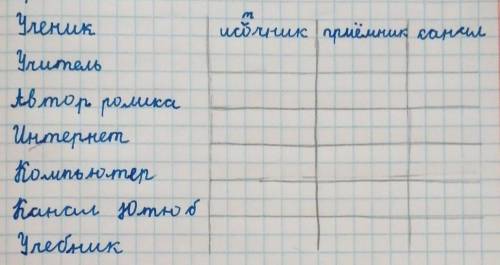 Ученик источник приёмник канал
Учитель
Автор ролика
Интернет
Компьютер
Канал Ютюб
Учебник